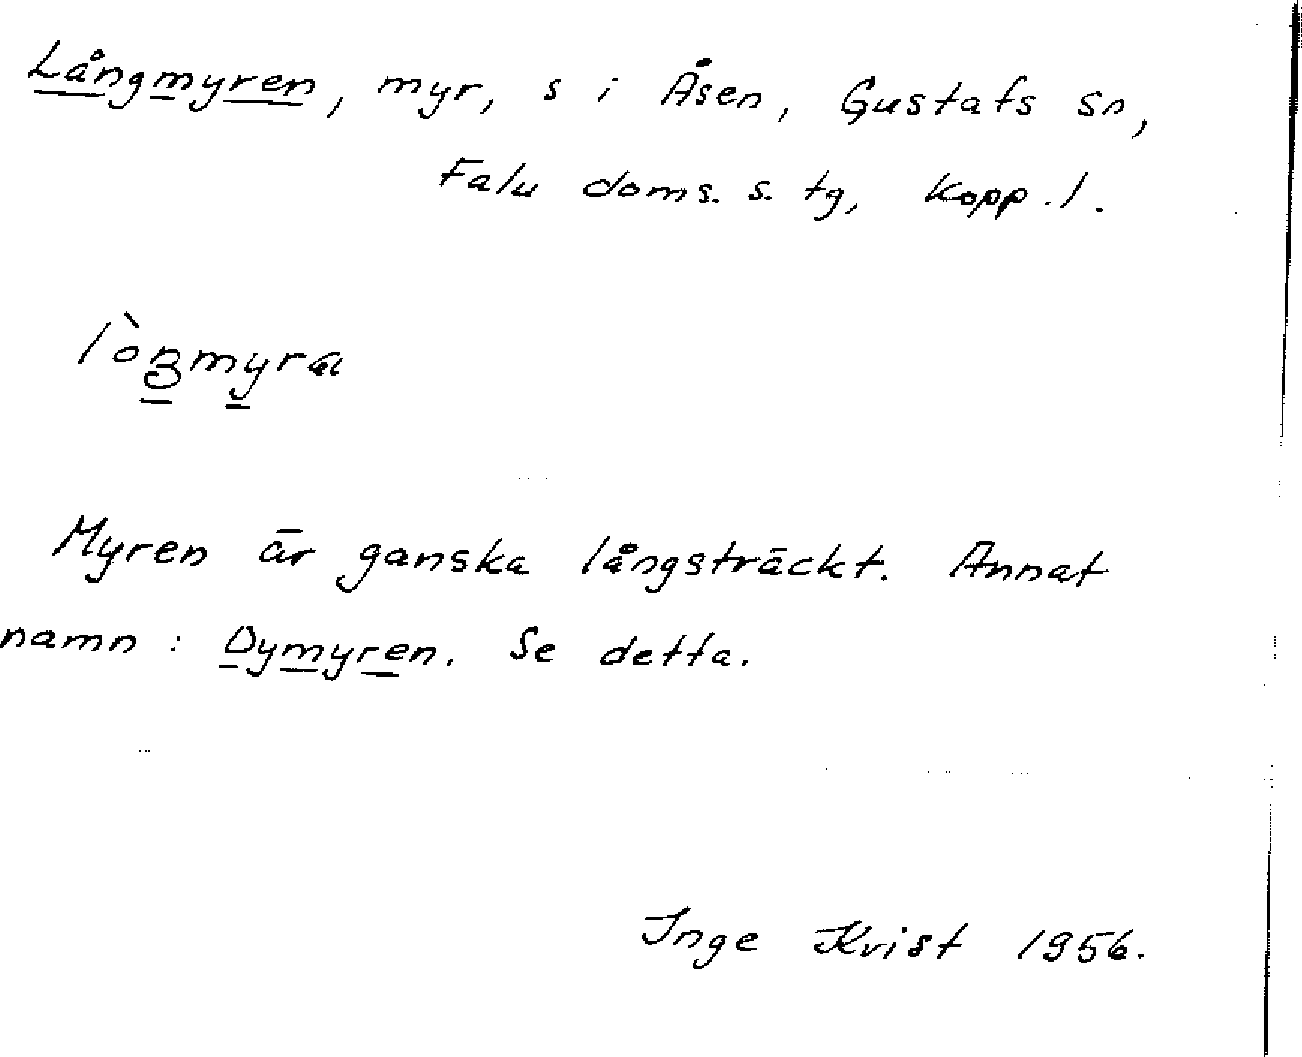 Långmyren, myr, s i Åsen, Gustafs sn,
Falu doms. s. tg, Kopp. l.
Myren är ganska långsträckt. Annat
namn: Dymyren. Se detta.
Inge Krist 1956.